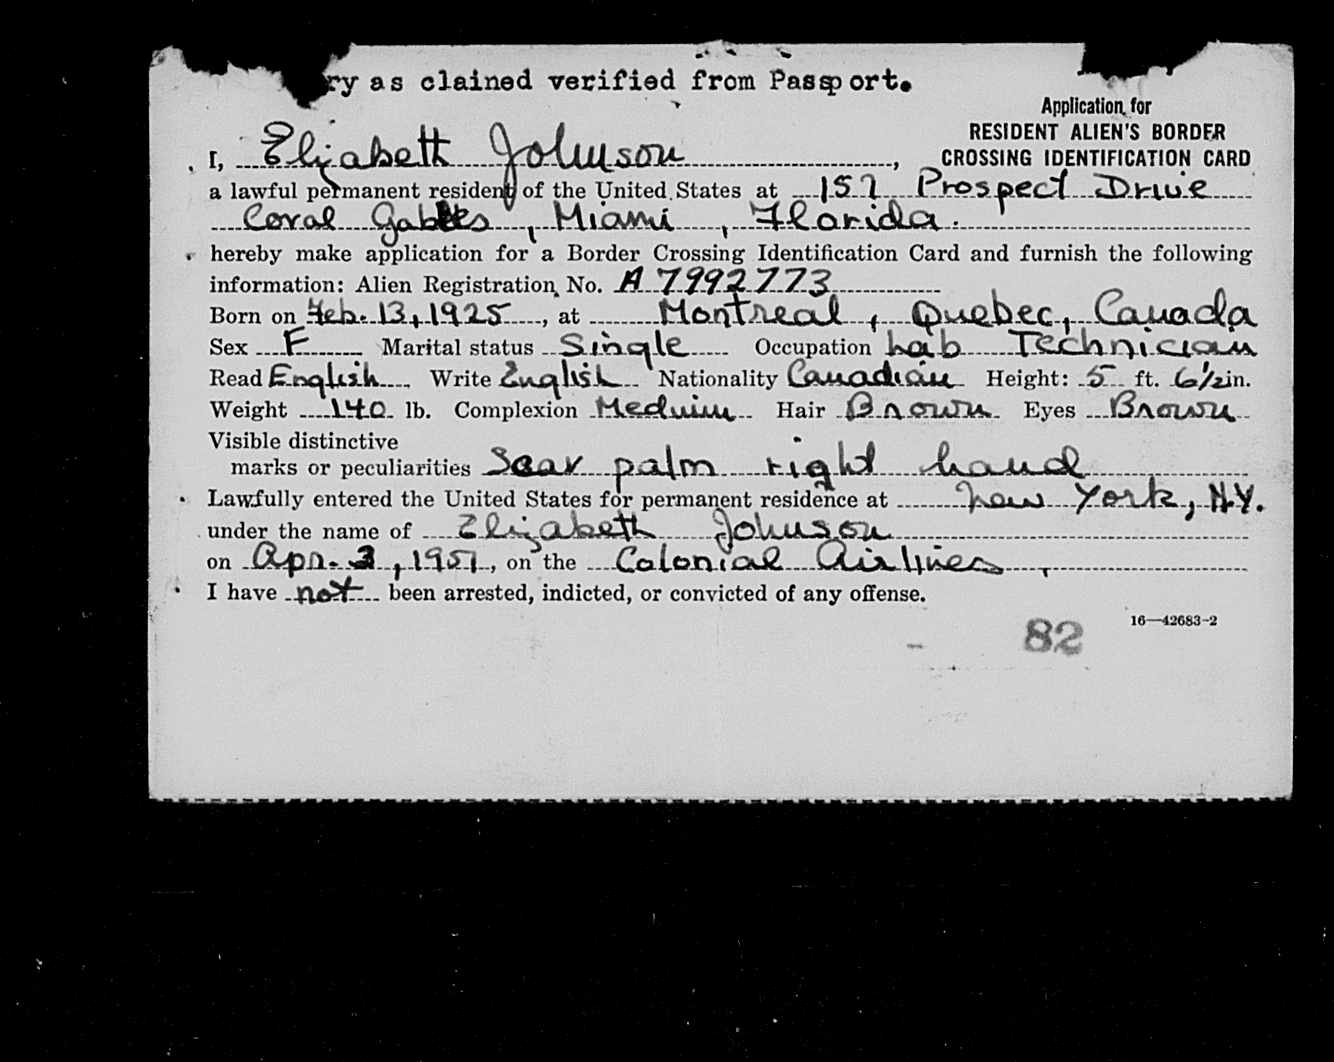 ry as clained verified from Passport.
Application for
RESIDENT ALIEN'S BORDER
CROSSING IDENTIFICATION CARD
I, Elizabeth Johnson,
a lawful permanent resident of the United States at 157 Prospect Drive
Coral Gables, Miami, Florida.
hereby make application for a Border Crossing Identification Card and furnish the following
information: Alien Registration No. A 7992773
Born on Feb. 13, 1925, at Montreal, Quebec, Canada
Sex F Marital status Single Occupation Lab Technician
Read English Write English Nationality Canadian Height: 5 ft. 6½ in.
Weight 140 lb. Complexion Medium Hair Brown Eyes Brown
Visible distinctive
marks or peculiarities Scar palm right hand
Lawfully entered the United States for permanent residence at New York, N.Y.
under the name of Elizabeth Johnson
on Apr. 3, 1951, on the Colonial Airlines.
I have not been arrested, indicted, or convicted of any offense.
16—42683-2
82